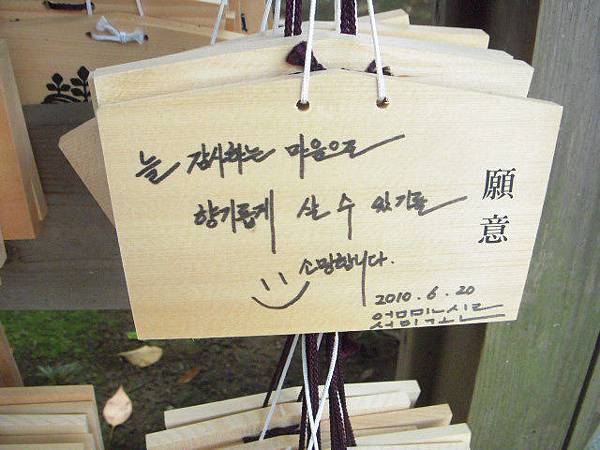 늘 감사하는 마음으로
향기롭게 살 수 있기를
소망합니다.
2010.6.20
願意